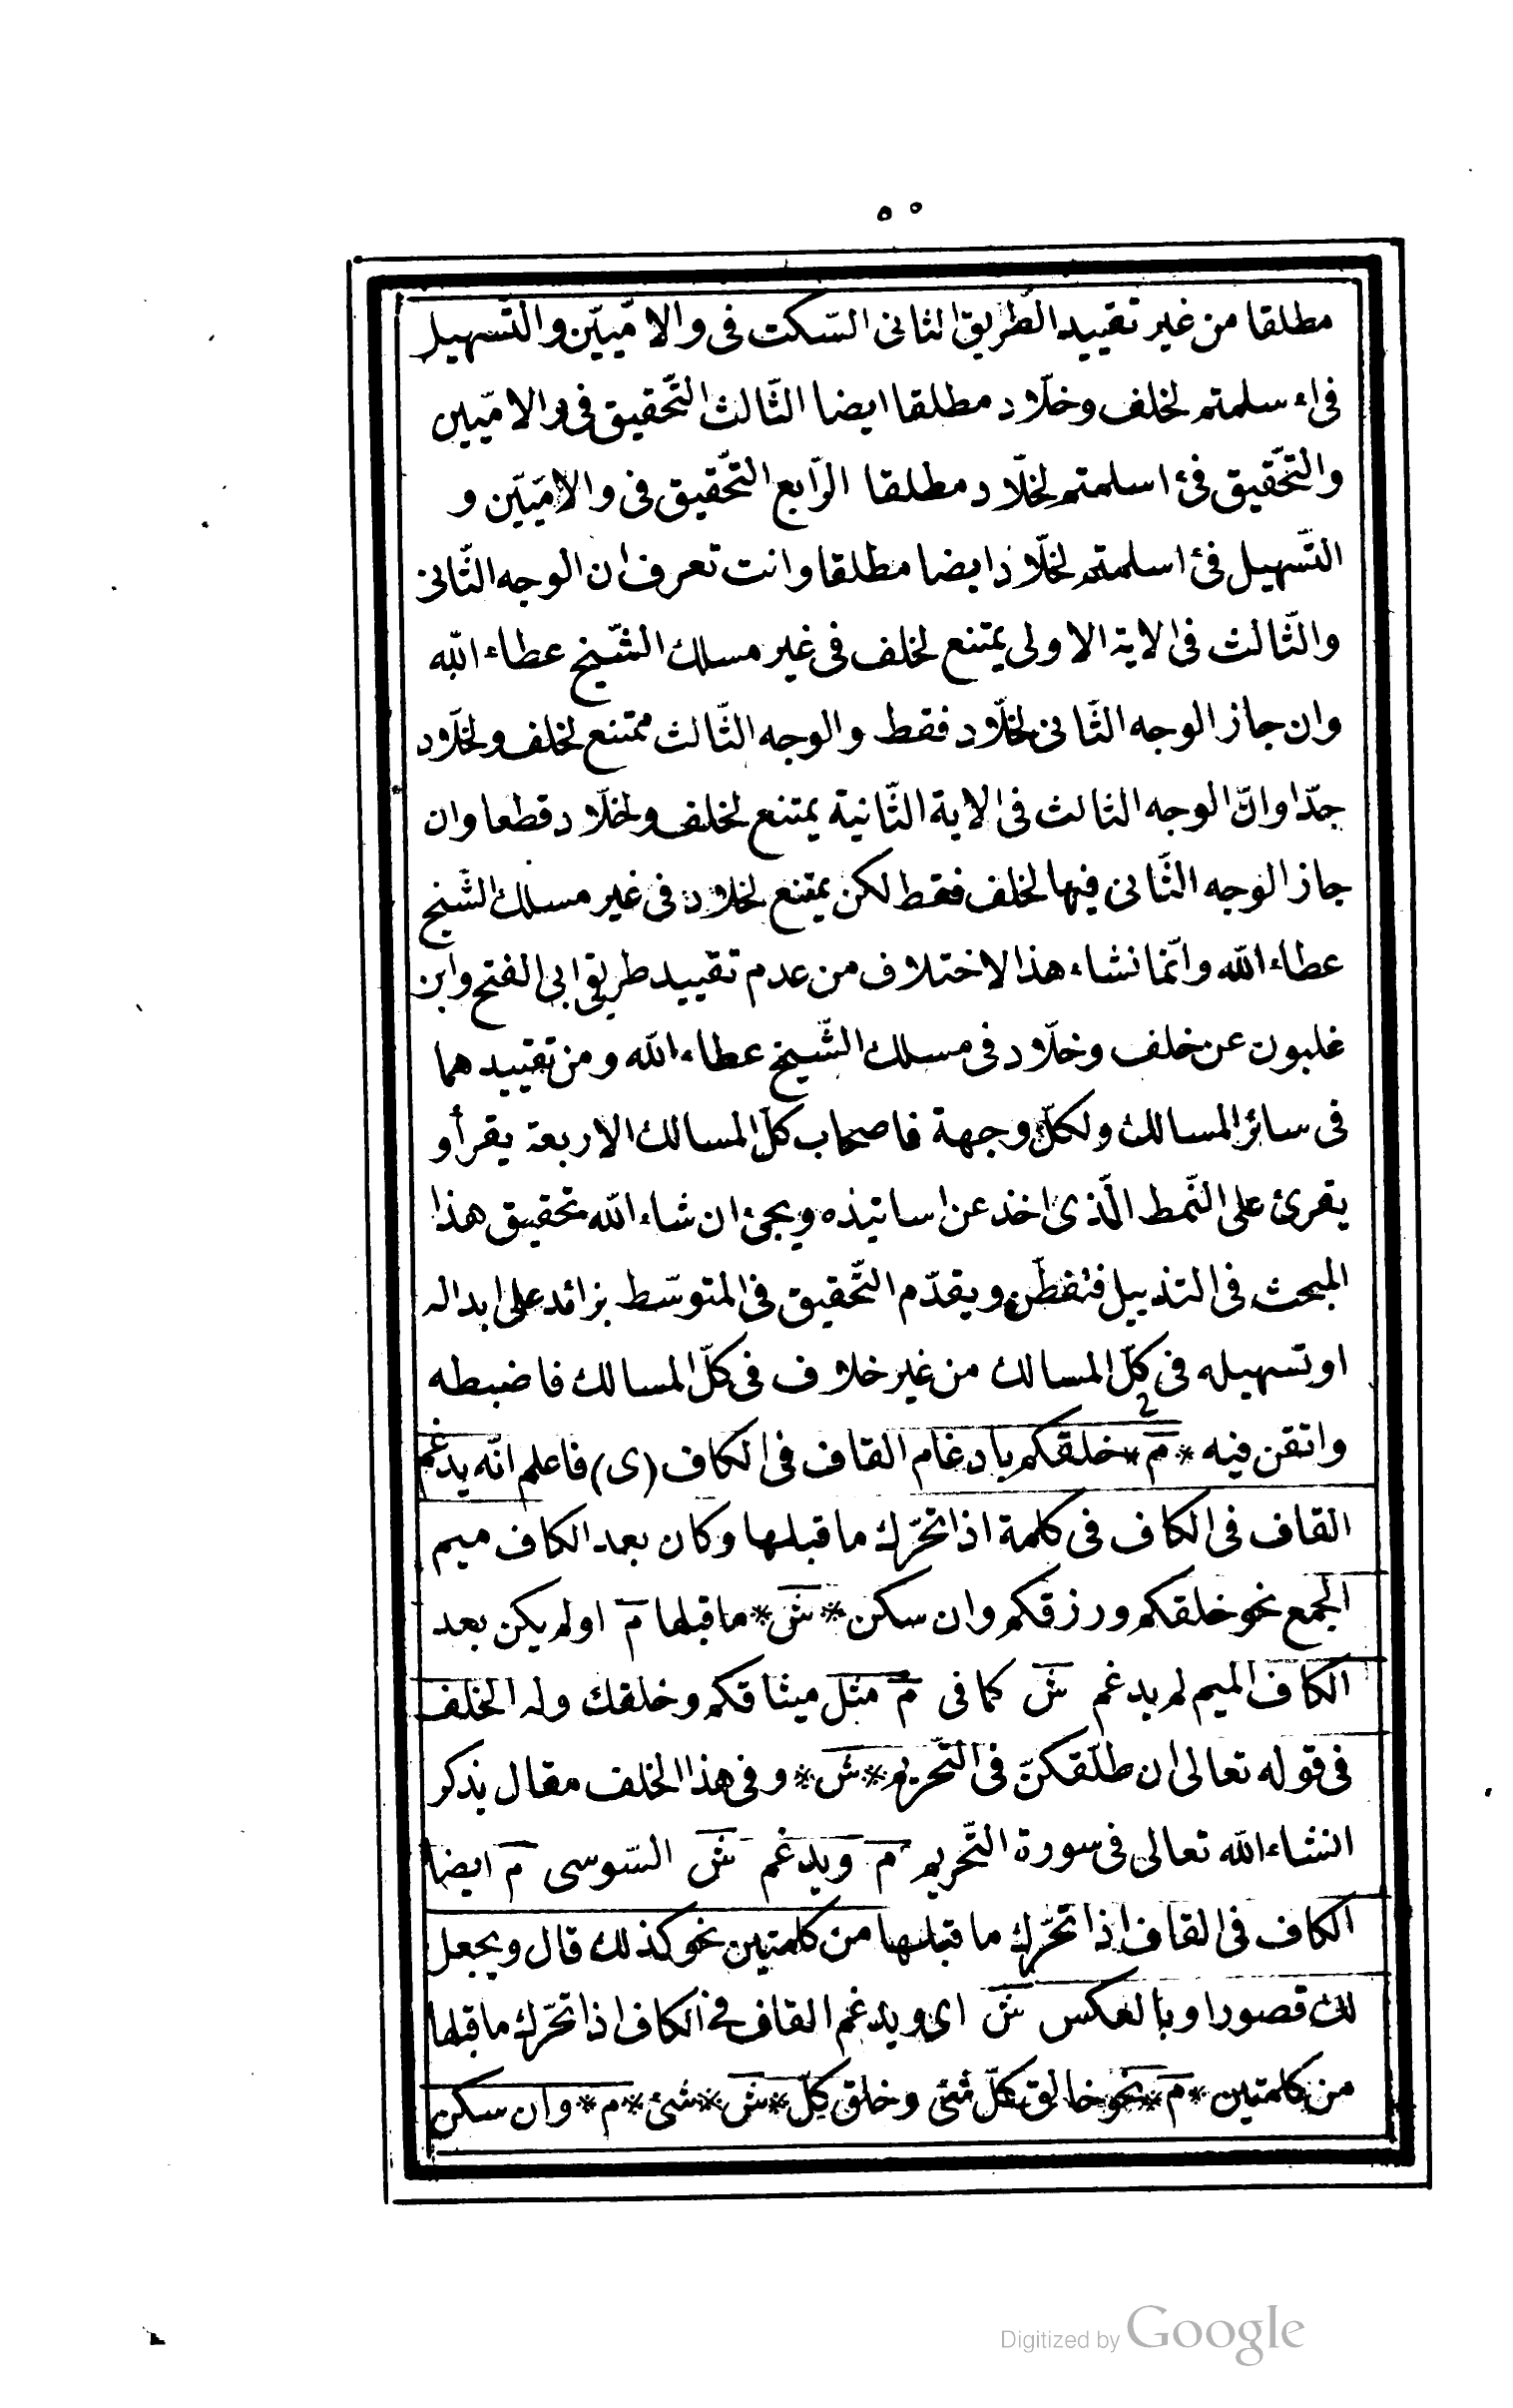 ٥٥
مطلقا من غير تقييد الطّريق الثانى السّكت فى والامّيّين والتّسهيل
فى اء سلمتم لخلف وخلّاد مطلقا ايضا الثّالث التّحقيق فى والامّيين
والتّحقيق فى ء اسلمتم لخلّاد مطلقا الرّابع التّحقيق فى والامّيّين و
التّسهيل فى ء اسلمتم لخلّاد ايضا مطلقا وانت تعرف ان الوجه الثّانى
والثّالث فى الاية الاولى يمتنع لخلف فى غير مسلك الشّيخ عطاء اللّه
وان جاز الوجه الثّانى لخلّاد فقط والوجه الثّالث ممتنع لخلف ولخلّاد
جدّا وانّ الوجه الثالث فى الاية الثّانية يمتنع لخلف ولخلّاد قطعا وان
جاز الوجه الثّانى فيها لخلف فقط لكن يمتنع لخلاد فى غير مسلك الشّيخ
عطاء اللّه وانّما نشاء هذا الاختلاف من عدم تقييد طريق ابى الفتح وابن
غلبون عن خلف وخلّاد فى مسلك الشّيخ عطاء اللّه ومن تقييدهما
فى سائر المسالك ولكلّ وجهة فاصحاب كلّ المسالك الاربعة يقرأو
يقرئ على النّمط الّذى اخذ عن اساتيذه ويجئ ان شاء اللّه تحقيق هذا
المبحث فى التذييل فتفطّن ويقدّم التّحقيق فى المتوسّط بزائد على ابداله
اوتسهيله فى كلّ المسالك من غير خلاف فى كلّ المسالك فاضبطه
واتقن فيه * م * خلقكم بادغام القاف فى الكاف (ى) فاعلم انّه يدغم
القاف فى الكاف فى كلمة اذا تحرّك ما قبلها وكان بعد الكاف ميم
الجمع نحو خلقكم ورزقكم وان سكن * ش * ما قبلها م اولم يكن بعد
الكاف الميم لم يدغم ش كما فى م مثل ميثاقكم وخلقك وله الخلف
فى قوله تعالى ان طلّقكنّ فى التّحريم * ش * وفى هذا الخلف مقال يذكر
انشاء اللّه تعالى فى سورة التّحريم م ويدغم ش السّوسى م ايضا
الكاف فى القاف اذا تحرّك ما قبلها من كلمتين نحو كذلك قال ويجعل
لك قصورا وبالعكس ش اى ويدغم القاف فى الكاف اذا تحرّك ما قبلها
من كلمتين * م * نحو خالق كلّ شئ وخلق كلّ * ش * شئ * م * وان سكن
Digitized by Google